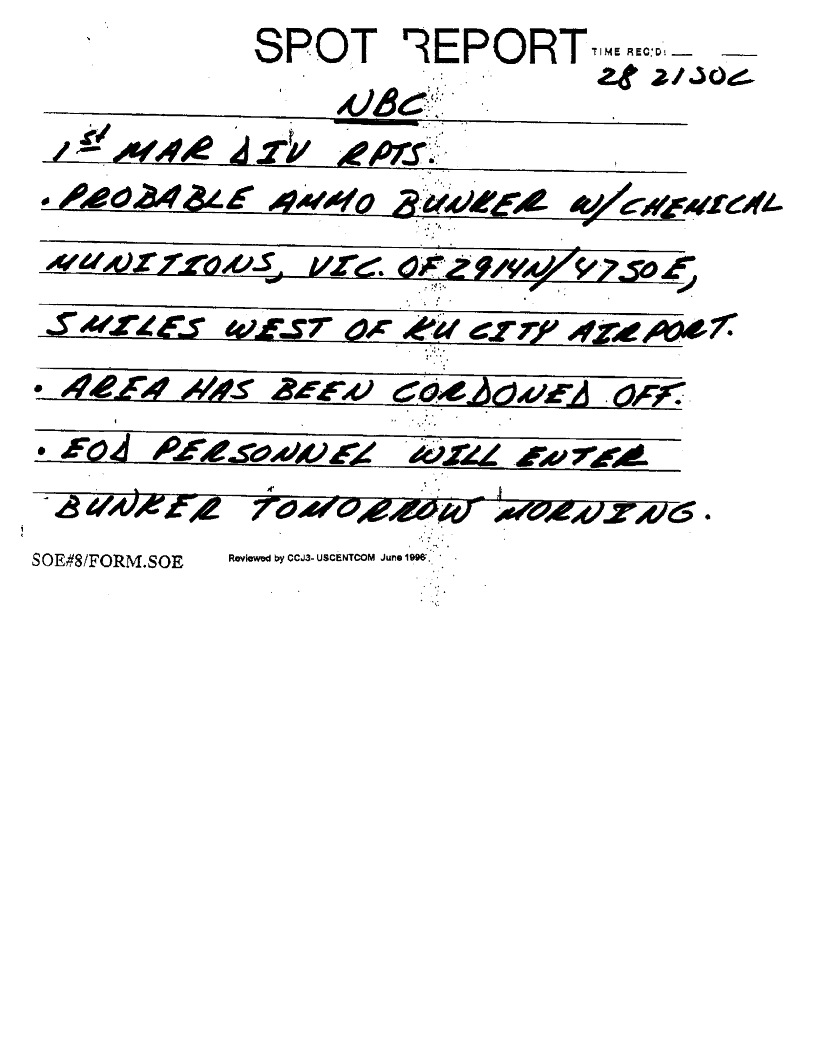 SPOT REPORT TIME REC'D:
28 2150C
NBC
1st MAR DIV RPTS.
• PROBABLE AMMO BUNKER W/CHEMICAL
MUNITIONS, VIC. OF 2914N/4750E,
5 MILES WEST OF KU CITY AIRPORT.
• AREA HAS BEEN CORDONED OFF.
• EOD PERSONNEL WILL ENTER
BUNKER TOMORROW MORNING.
SOE#8/FORM.SOE Reviewed by CCJ3- USCENTCOM June 1996